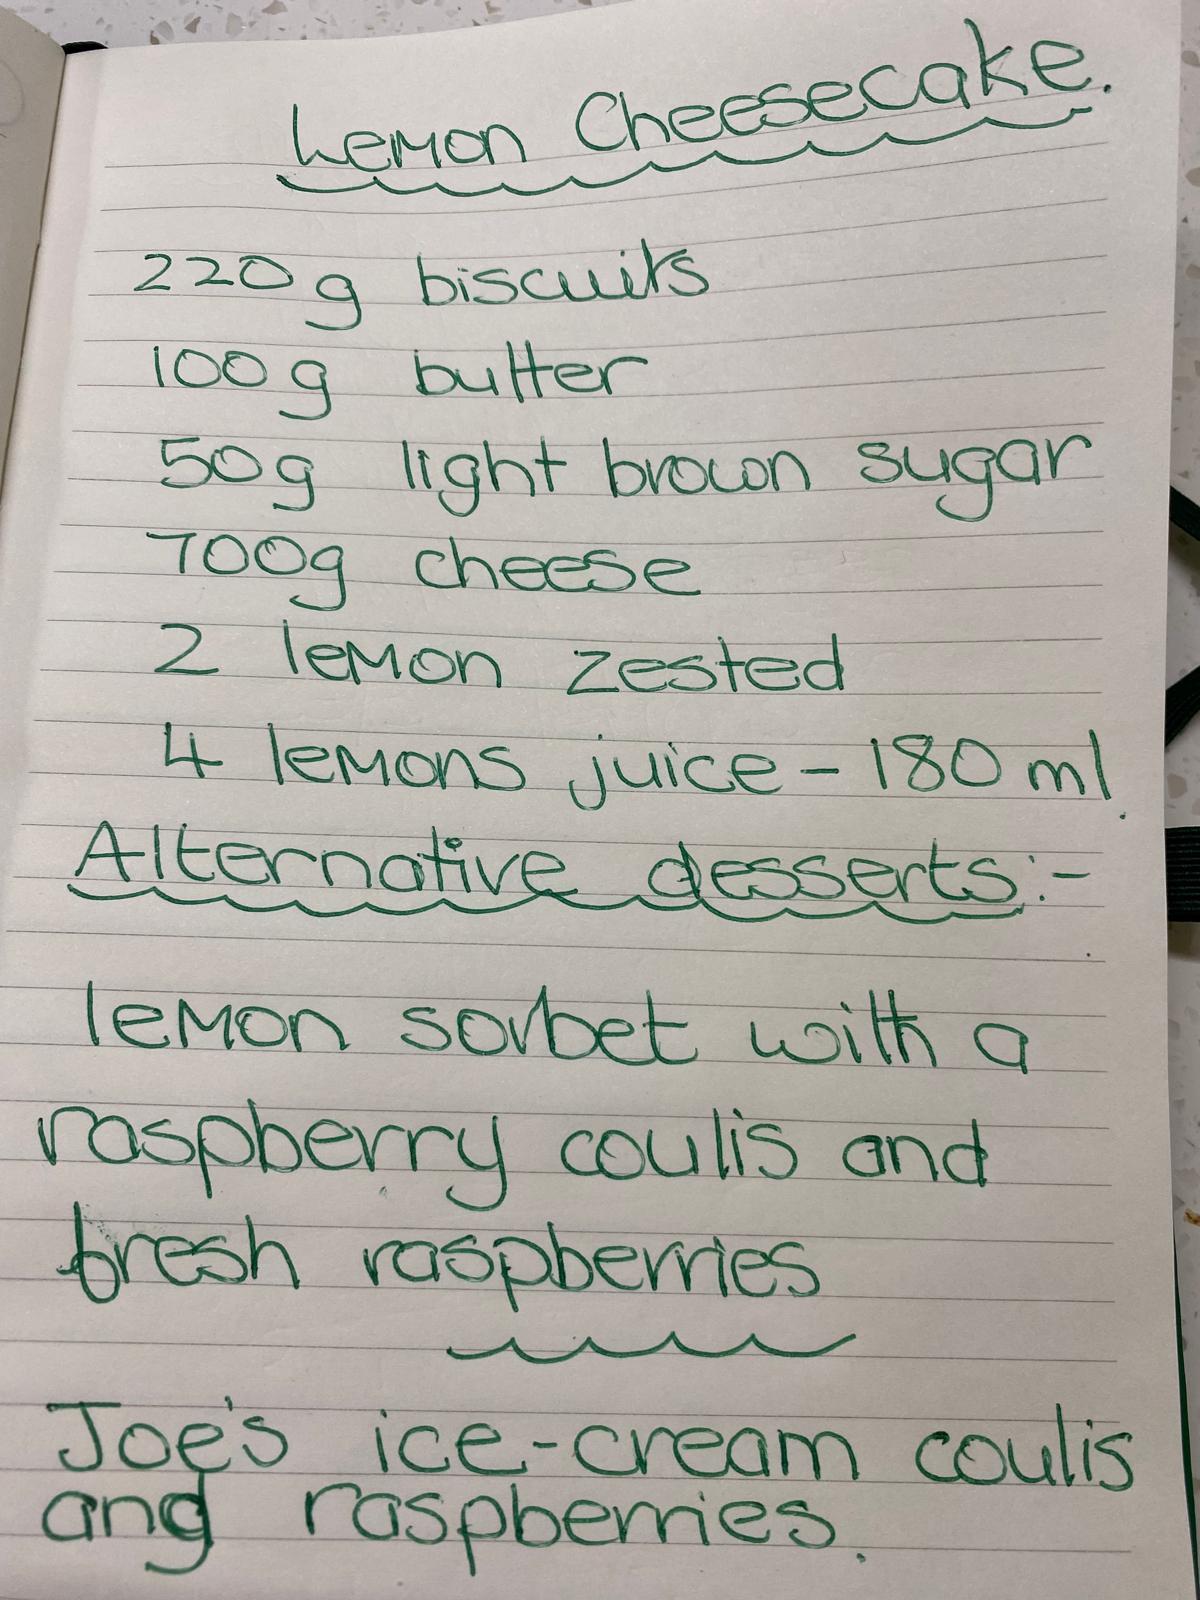 Lemon Cheesecake.
220g biscuits
100g butter
50g light brown sugar
700g cheese
2 lemon zested
4 lemons juice - 180 ml.
Alternative desserts:-
lemon sorbet with a
raspberry coulis and
fresh raspberries
Joe's ice-cream coulis
and raspberries.